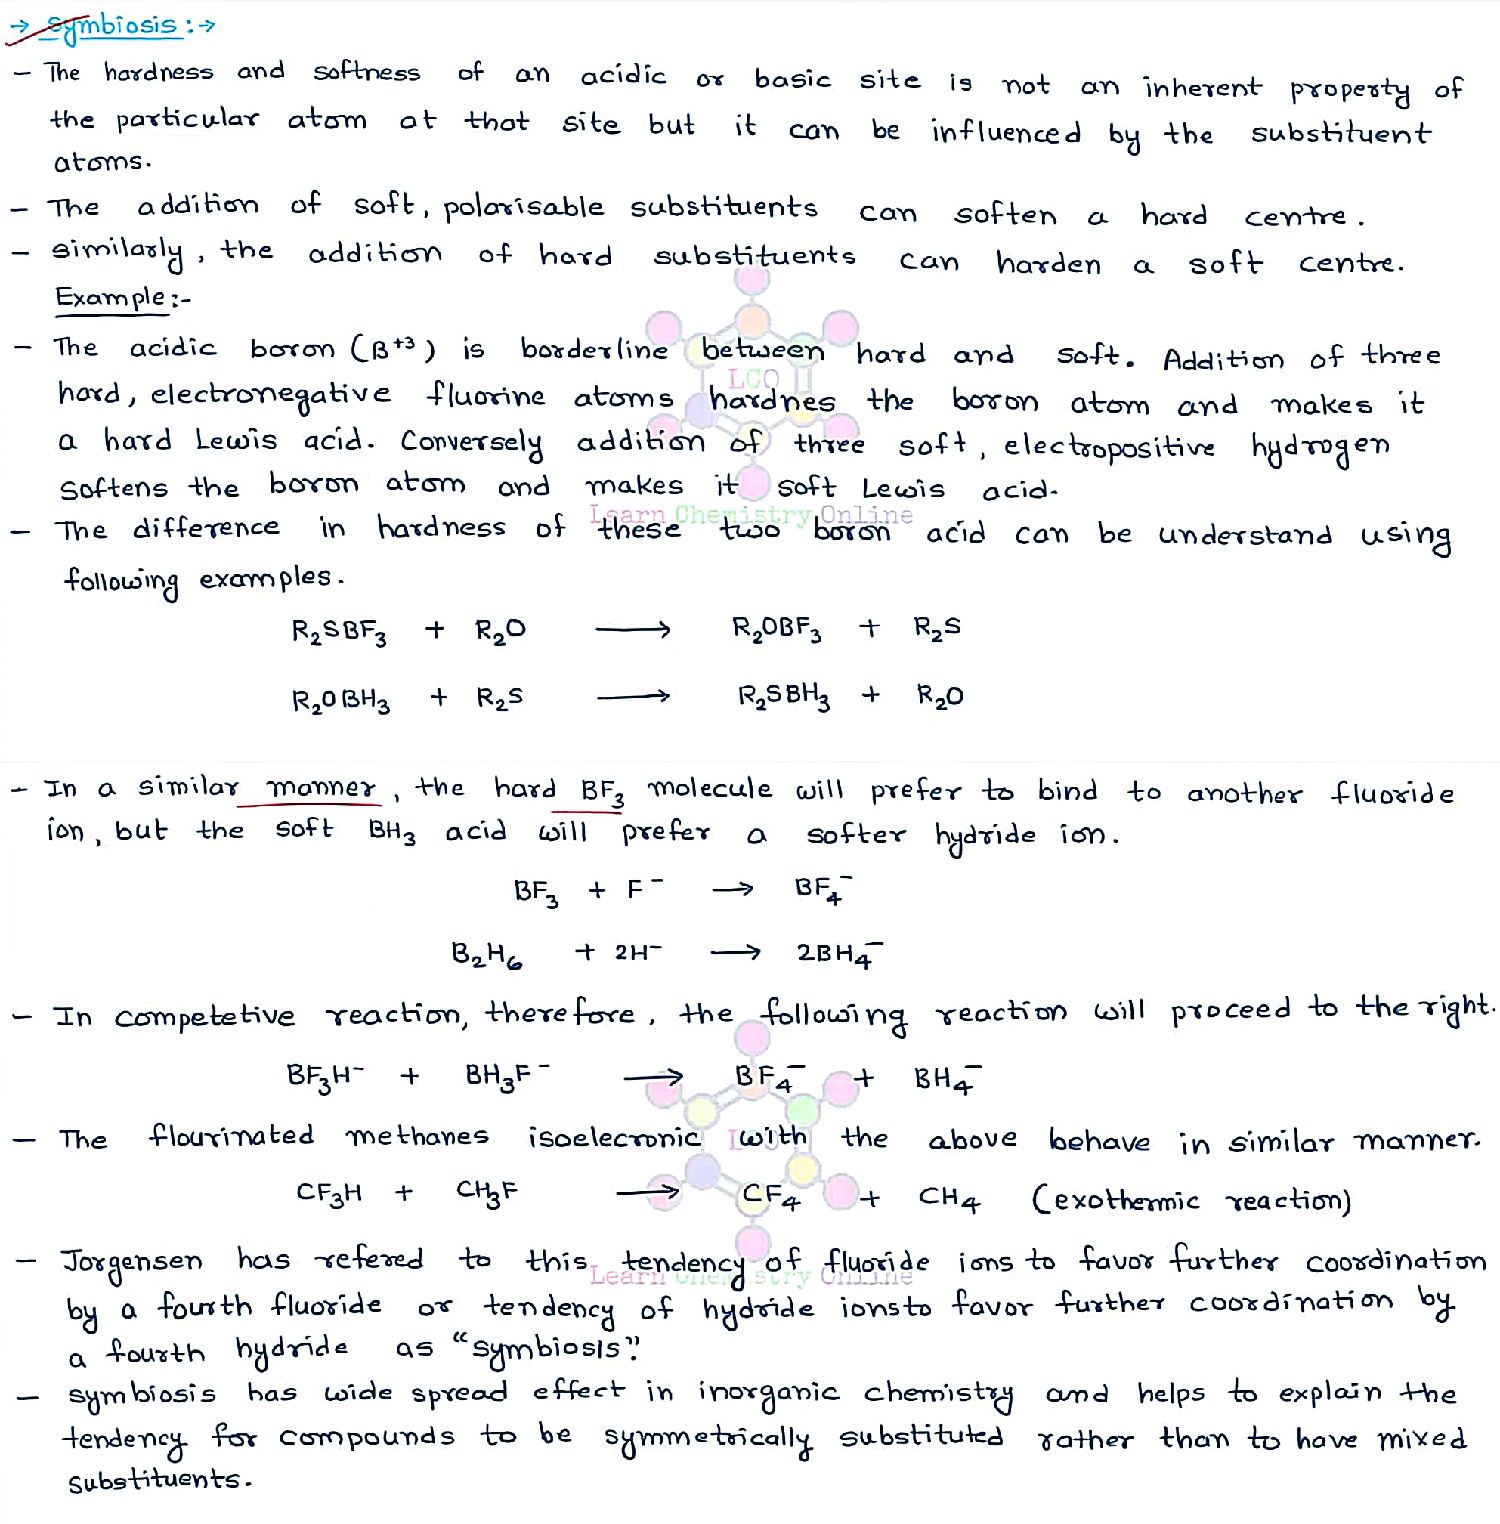 → Symbiosis :→
– The hardness and softness of an acidic or basic site is not an inherent property of
the particular atom at that site but it can be influenced by the substituent
atoms.
– The addition of soft, polarisable substituents can soften a hard centre.
– similarly, the addition of hard substituents can harden a soft centre.
Example :-
– The acidic boron (B⁺³) is borderline between hard and soft. Addition of three
hard, electronegative fluorine atoms hardnes the boron atom and makes it
a hard Lewis acid. Conversely addition of three soft, electropositive hydrogen
softens the boron atom and makes it soft Lewis acid.
– The difference in hardness of these two boron acid can be understand using
following examples.
R₂SBF₃ + R₂O ⟶ R₂OBF₃ + R₂S
R₂OBH₃ + R₂S ⟶ R₂SBH₃ + R₂O
– In a similar manner, the hard BF₃ molecule will prefer to bind to another fluoride
ion, but the soft BH₃ acid will prefer a softer hydride ion.
BF₃ + F⁻ ⟶ BF₄⁻
B₂H₆ + 2H⁻ ⟶ 2BH₄⁻
– In competetive reaction, therefore, the following reaction will proceed to the right.
BF₃H⁻ + BH₃F⁻ ⟶ BF₄⁻ + BH₄⁻
– The flourinated methanes isoelecronic with the above behave in similar manner.
CF₃H + CH₃F ⟶ CF₄ + CH₄ (exothermic reaction)
– Jorgensen has refered to this tendency of fluoride ions to favor further coordination
by a fourth fluoride or tendency of hydride ions to favor further coordination by
a fourth hydride as "symbiosis".
– symbiosis has wide spread effect in inorganic chemistry and helps to explain the
tendency for compounds to be symmetrically substituted rather than to have mixed
substituents.
LCO
Learn Chemistry Online
LCO
Learn Chemistry Online